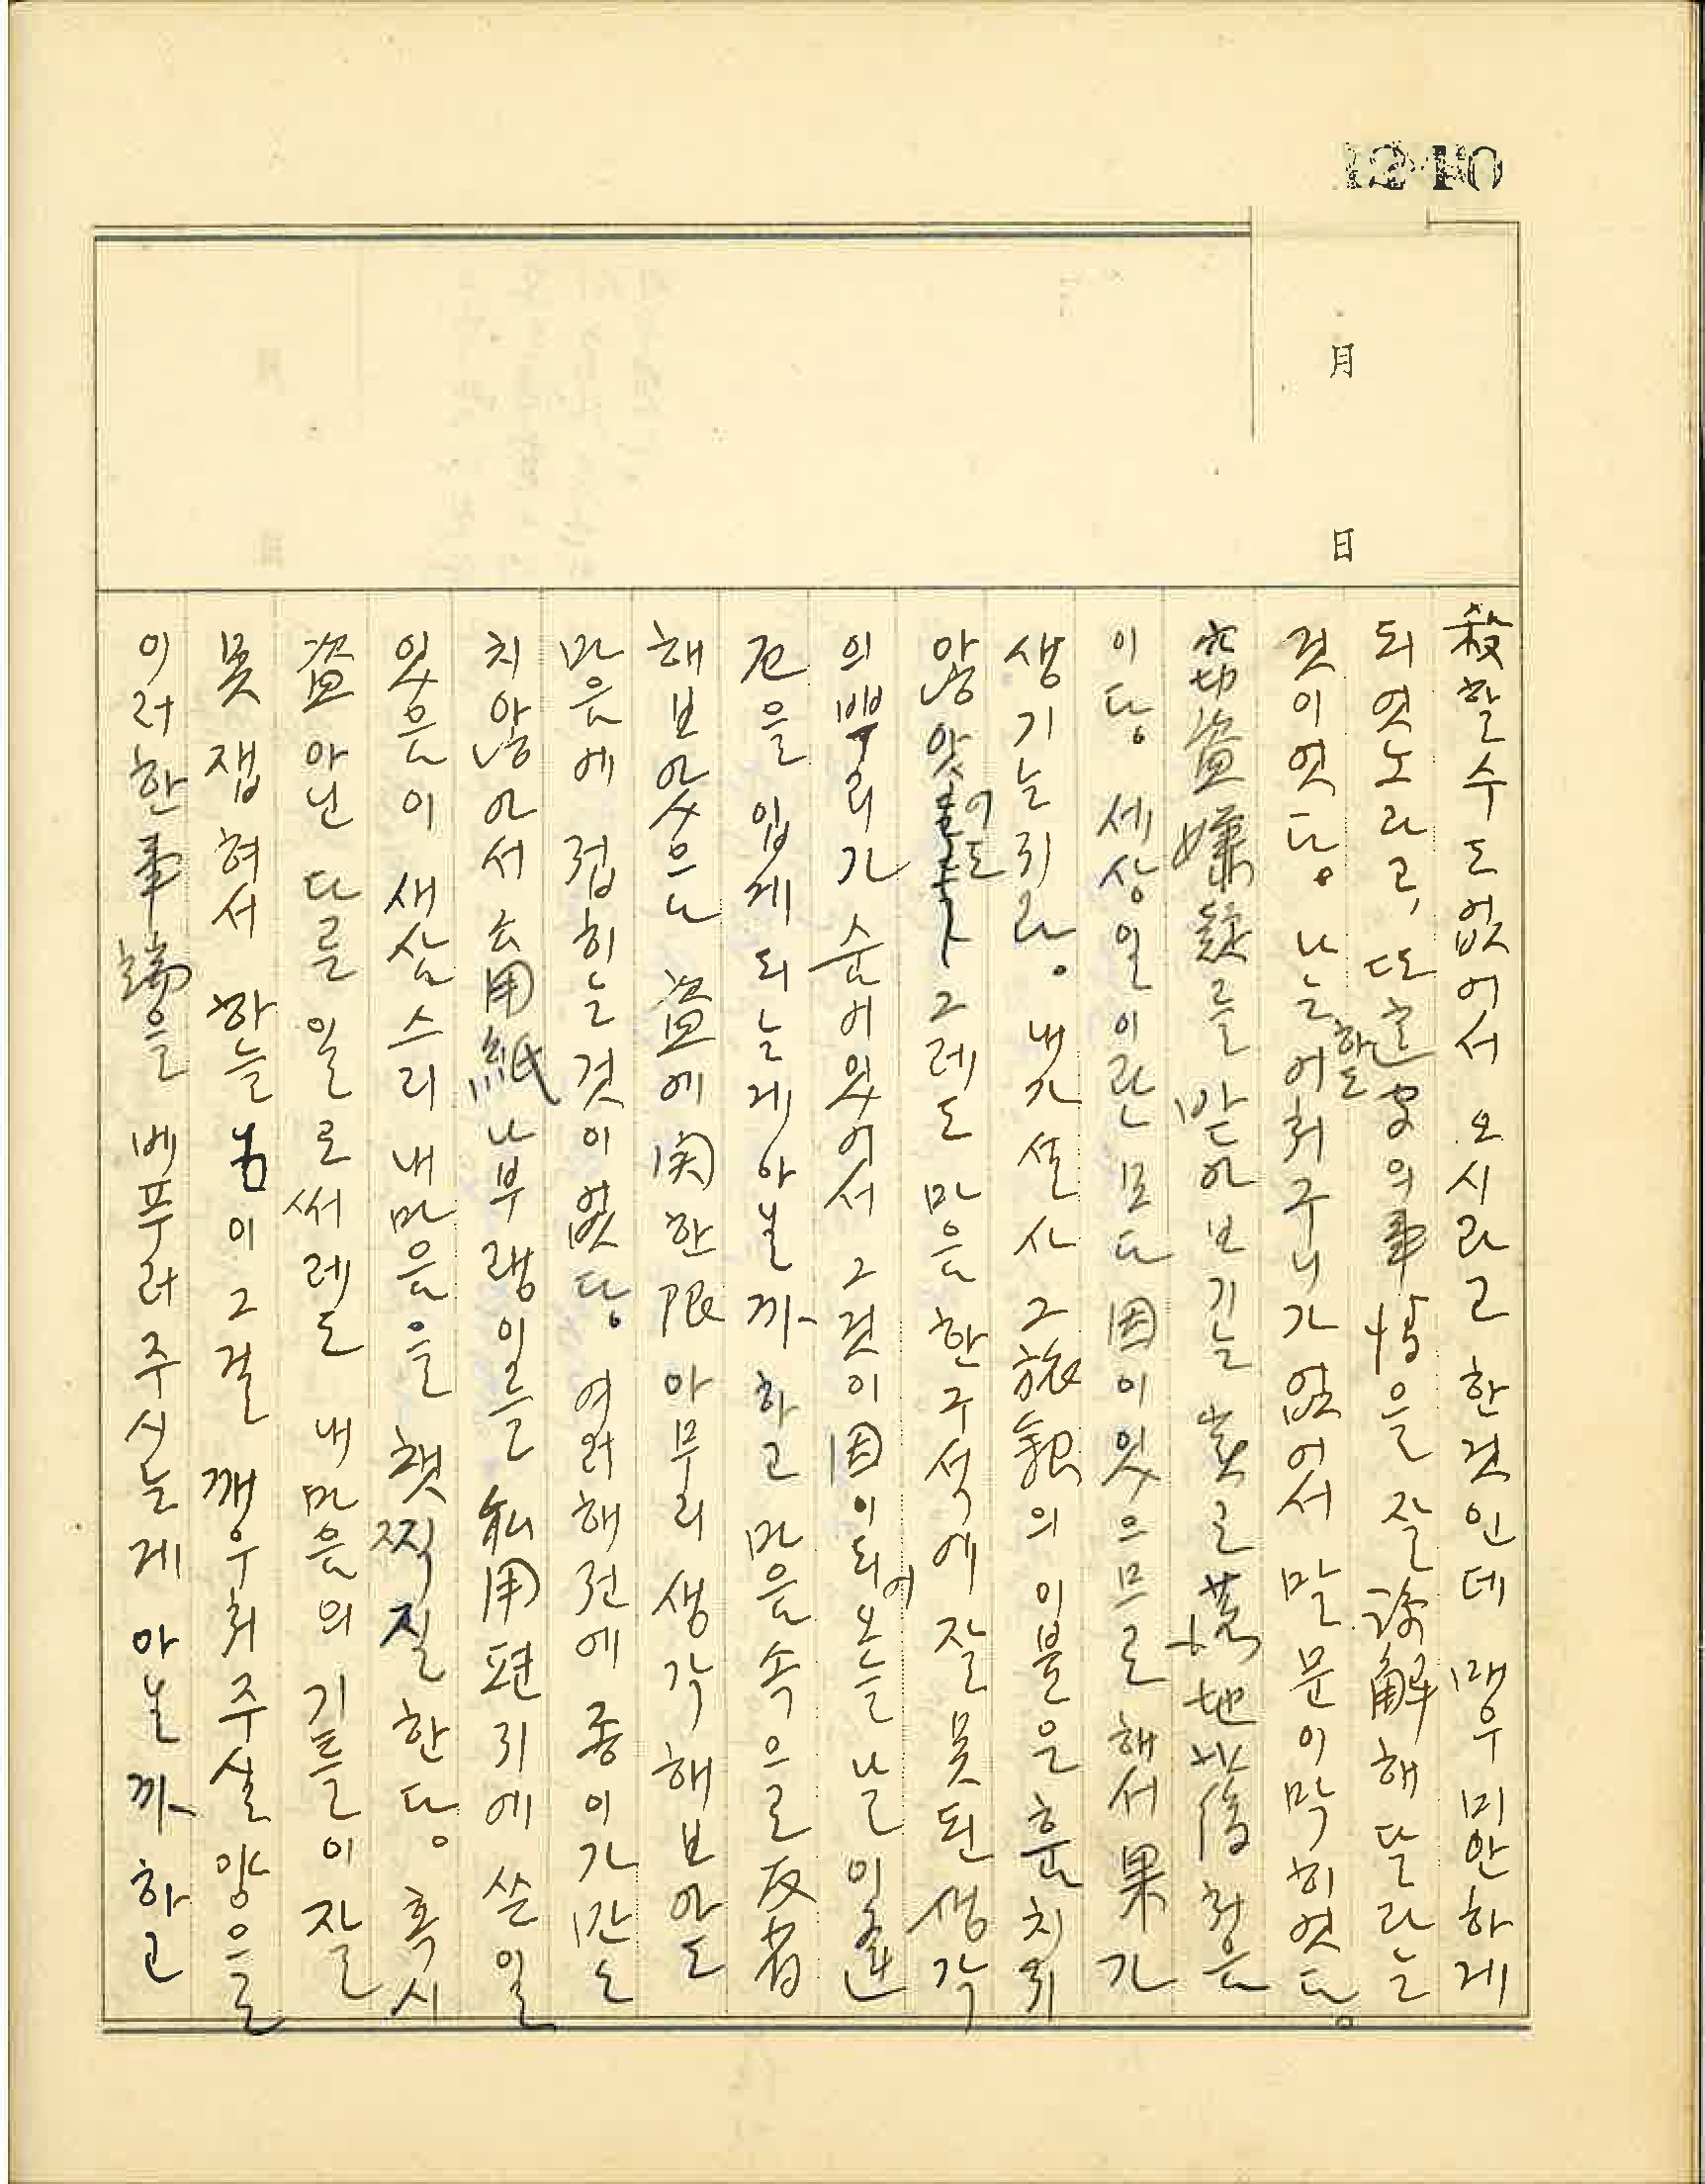 12·10
月 日
殺할수도없어서 오시라고 한것인데 매우 미안하게
되엿노라고, 또 한 의事情을 잘 諒解해달라는
것이엿다。나는 어히구니가 없어서 말문이 막히엿다。
하도
窃盗嫌疑를 받아보기는 実로 地 後 처음
이다。세상일이란 모다 因이 잇으므로 해서 果가
생기는 리라。 내가 설사 그 旅館의 이불은 훔치리
않앗 그레도 마음 한구석에 잘못된 생각
어도
의 뿌리가 숨어 잇어서 그것이 因이되 오늘날 이 運
어
을 입게 되는게 아닐까 하고 마음속으로 反省
해보앗으나 盗에 関한 限 아무리 생각해보아도
마음에 접히는 것이 없다。여러해전에 종이 가만도
치않아서 公用紙나 부랭이를 私用편지에 쓴일
잇음이 새삼스리 내마음을 챗찍질한다。혹시
盗아닌 다른 일로써레도 내마음의 기틀이 잘
못 잽혀서 하늘님이 그걸 깨우처주실양으로
이러한 事端을 베푸러주시는게 아닐까 하고